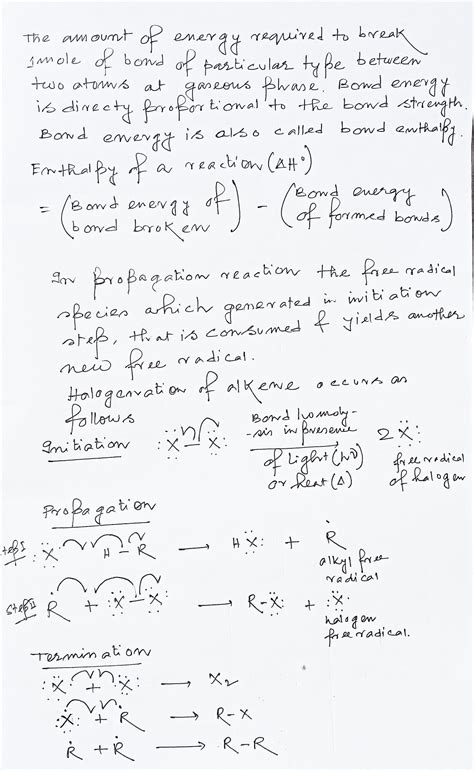 The amount of energy required to break
1mole of bond of particular type between
two atoms at gaseous phase. Bond energy
is directy proportional to the bond strength.
Bond energy is also called bond enthalpy.
Enthalpy of a reaction (ΔH°)
= (Bond energy of bond broken) - (Bond energy of formed bonds)
In propagation reaction the free radical
species which generated in initiation
step, that is consumed & yields another
new free radical.
Halogenation of alkene occurs as
follows
Initiation :Ẍ–Ẍ: Bond homoly-sis in presence of light (hν) or heat (Δ) 2 Ẍ: free radical of halogen
Propagation
Step I :Ẍ· H–R → HẌ: + Ṙ
alkyl free
radical
Step II Ṙ + :Ẍ–Ẍ: → R-Ẍ: + :Ẍ·
halogen
free radical.
Termination
:Ẍ· + ·Ẍ: → X2
:Ẍ· + Ṙ → R-X
Ṙ + Ṙ → R-R